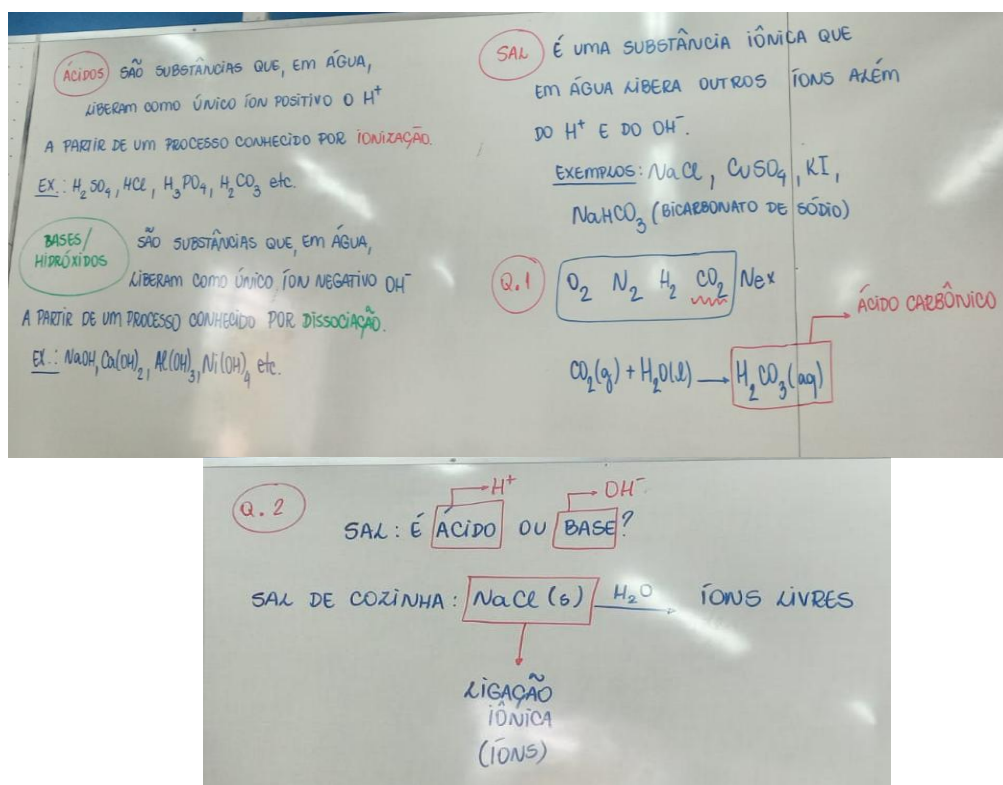 ÁCIDOS SÃO SUBSTÂNCIAS QUE, EM ÁGUA,
LIBERAM COMO ÚNICO ÍON POSITIVO O H⁺
A PARTIR DE UM PROCESSO CONHECIDO POR IONIZAÇÃO.
EX.: H₂SO₄, HCl, H₃PO₄, H₂CO₃ etc.
BASES/
HIDRÓXIDOS
SÃO SUBSTÂNCIAS QUE, EM ÁGUA,
LIBERAM COMO ÚNICO ÍON NEGATIVO OH⁻
A PARTIR DE UM PROCESSO CONHECIDO POR DISSOCIAÇÃO.
EX.: NaOH, Ca(OH)₂, Al(OH)₃, Ni(OH)₄ etc.
SAL É UMA SUBSTÂNCIA IÔNICA QUE
EM ÁGUA LIBERA OUTROS ÍONS ALÉM
DO H⁺ E DO OH⁻.
EXEMPLOS: NaCl, CuSO₄, KI,
NaHCO₃ (BICARBONATO DE SÓDIO)
Q.1 O₂ N₂ H₂ CO₂ Nex
ÁCIDO CARBÔNICO
CO₂(g) + H₂O(l) → H₂CO₃(aq)
Q. 2
H⁺ OH⁻
SAL: É ÁCIDO OU BASE?
SAL DE COZINHA: NaCl (s) H₂O → ÍONS LIVRES
LIGAÇÃO
IÔNICA
(ÍONS)